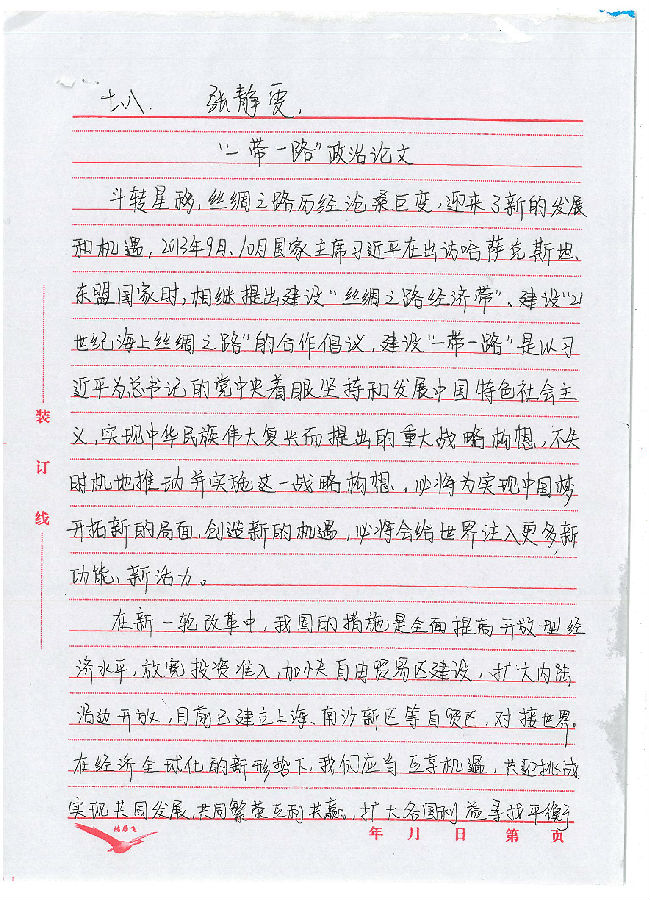 七八、 张静雯，
"一带一路"政治论文
斗转星移，丝绸之路历经沧桑巨变，迎来了新的发展
和机遇，2013年9月、10月国家主席习近平在出访哈萨克斯坦、
东盟国家时，相继提出建设"丝绸之路经济带"、建设"21
世纪海上丝绸之路"的合作倡议，建设"一带一路"是以习
近平为总书记的党中央着眼坚持和发展中国特色社会主
义，实现中华民族伟大复兴而提出的重大战略构想，不失
时机地推动并实施这一战略构想，必将为实现中国梦
开拓新的局面，创造新的机遇，必将会给世界注入更多新
功能、新活力。
在新一轮改革中，我国的措施是全面提高开放型经
济水平，放宽投资准入，加快自由贸易区建设，扩大内陆
沿边开放，目前已建立上海、南沙新区等自贸区，对接世界。
在经济全球化的新形势下，我们应当互享机遇，共迎挑战
实现共同发展、共同繁荣互利共赢。扩大各国利益寻找平衡于
装
订
线
鸿雁飞
年 月 日 第 页